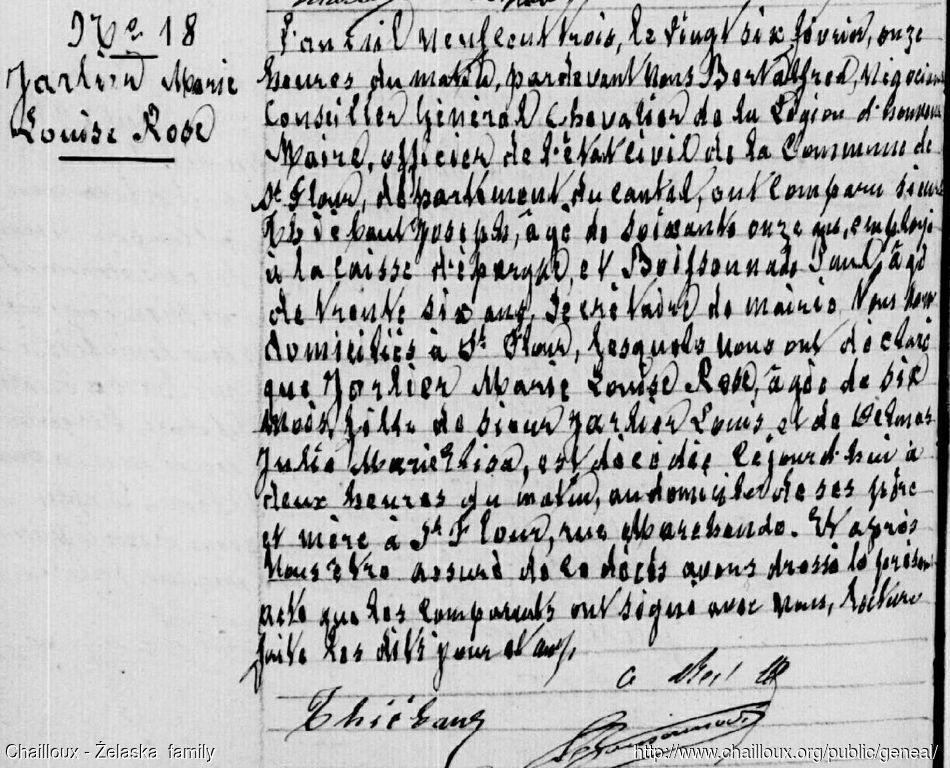 Nº 18
Jarlier Marie
Louise Rose
L'an mil neuf cent trois, le vingt six février, onze
heures du matin, pardevant Nous Bert Alfred, Négociant
Conseiller Général Chevalier de la Légion d'honneur
Maire, officier de l'état civil de la Commune de
St Flour, département du cantal, ont comparu sieurs
Thiébaut Joseph, âgé de soixante onze ans, employé
à la caisse d'épargne, et Boissonnade Paul, âgé
de trente six ans, Secrétaire de mairie, tous deux
domiciliés à St Flour, Lesquels nous ont déclaré
que Jarlier Marie Louise Rose, âgée de six
Mois, fille de sieur Jarlier Louis et de Delmas
Julie Marie Elisa, est décédée cejourd'hui à
deux heures du matin, au domicile de ses père
et mère à St Flour, rue Marchande. Et après
Nous être assuré de ce décès avons dressé le présent
acte que les comparants ont signé avec nous, lecture
faite les dits jour et an.
Thiébaut
Chailloux - Želaska family
http://www.chailloux.org/public/geneal/